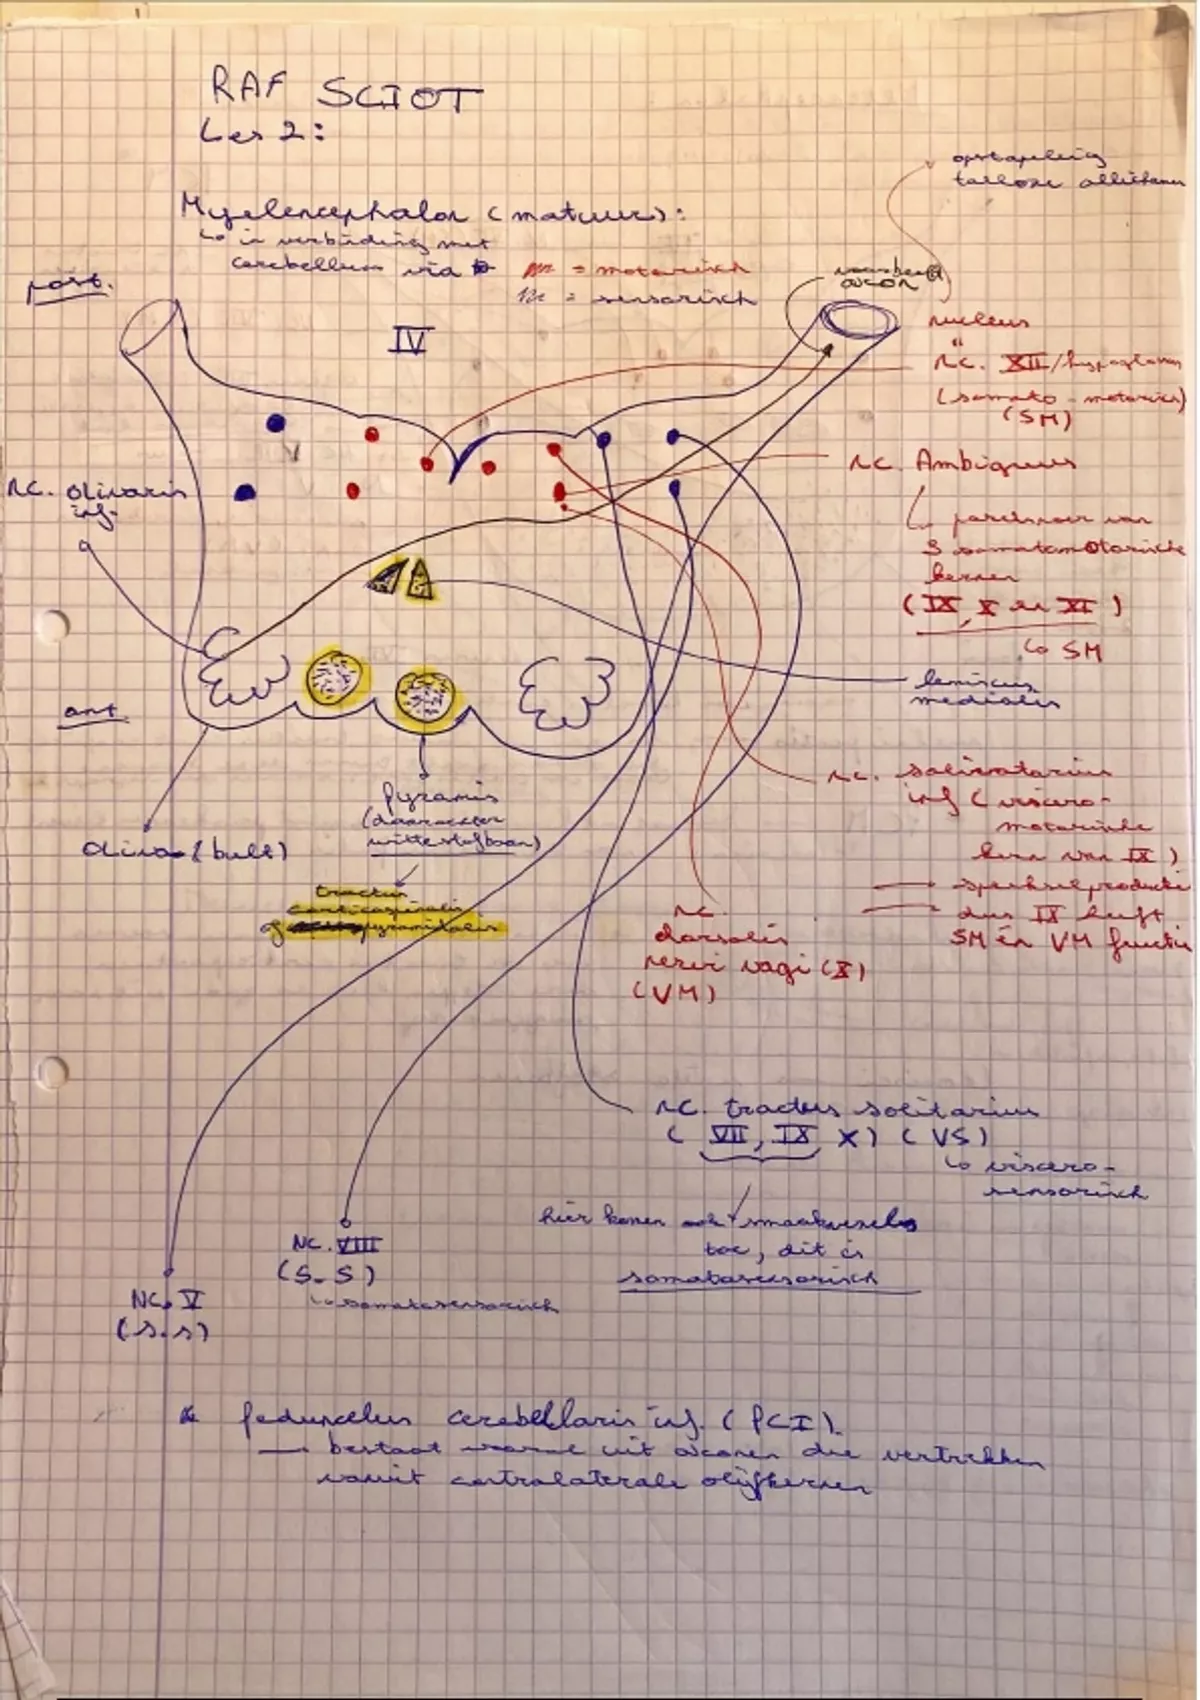 RAF SCIOT
Les 2:
opstapeling
talloze
Myelencephalon (matuur):
↳ in verbinding met
cerebellum via
= motorisch
= sensorisch
post.
IV
axon
nucleus
"
nc. XII/hypoglossus
(somato-motorisch)
(SM)
nc. Ambiguus
↳ parelsnoer van
3 somatomotorische
kernen
(IX, X en XI)
↳ SM
nc. olivaris
inf.
lemniscus
medialis
ant
nc. salivatorius
inf (viscero-
motorische
kern van IX)
→ speekselproductie
→ dus IX heeft
SM én VM functie
pyramis
(daarachter
wittestofbaan)
oliva (bult)
tractus
corticospinalis
of pyramidalis
nc.
dorsalis
nervi vagi (X)
(VM)
nc. tractus solitarius
(VII, IX X) (VS)
↳ viscero-
sensorisch
hier komen ook smaakvezels
toe, dit is
somatosensorisch
NC. VIII
(S-S)
↳ somatosensorisch
NC. V
(s.s)
* pedunculus cerebellaris inf. (PCI).
→ bestaat vooral uit axonen die vertrekken
vanuit contralaterale olijfkernen